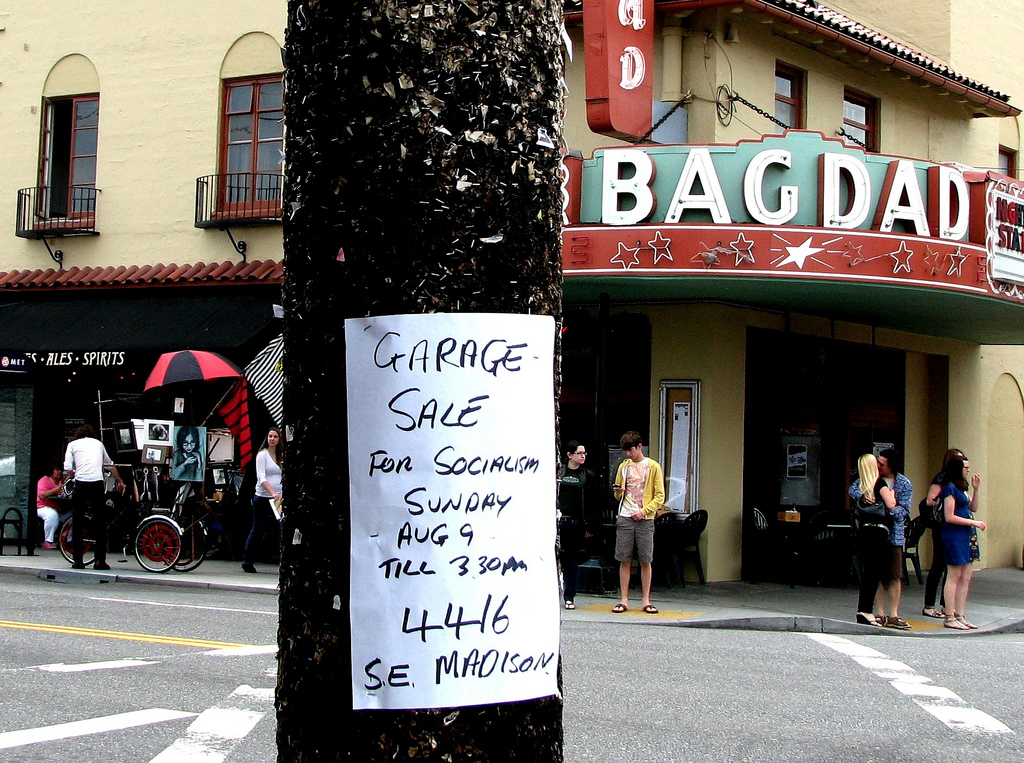 GARAGE
SALE
FOR SOCIALISM
SUNDAY
AUG 9
TILL 3 30PM
4416
S.E. MADISON
BAGDAD
ALES · SPIRITS
MET